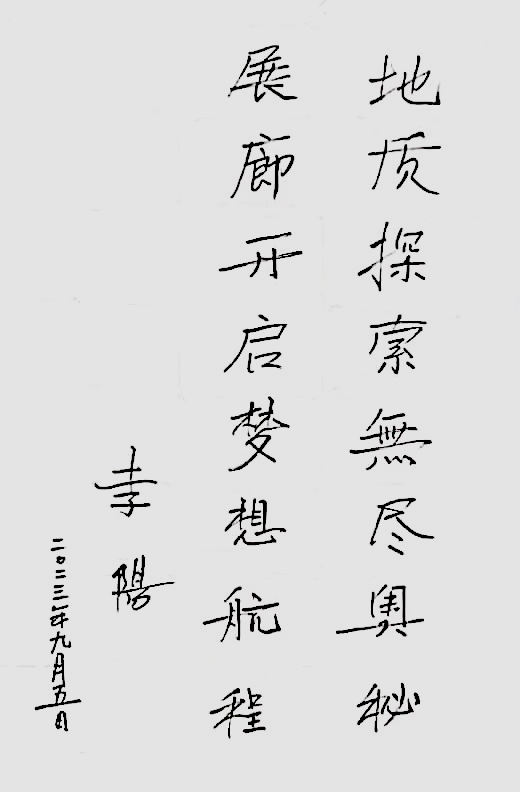 地质探索無尽奥秘
展廊开启梦想航程
李陽
二〇二三年九月五日